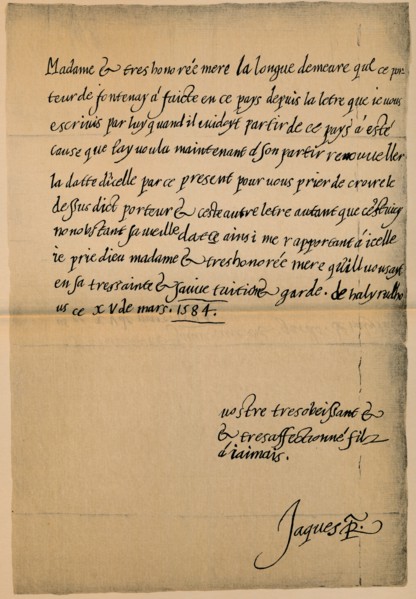 Madame & treshonorée mere la longue demeure que ce por
teur de fontenay á faicte en ce pays depuis la letre que ie vous
escriuis par luy quand il cuidoyt partir de ce pays á esté
cause que iay voulu maintenant á son partir renouueller
la datte dicelle par ce present pour vous prier de croire le
dessus dict porteur & ceste autre letre autant que
nonobstant sa vieille datte ainsi me rapportant á icelle
ie prie dieu madame & treshonorée mere quil vous ayt
en sa tressainte & sauue tuition & garde. de halyrudho
us ce xv de mars. 1584.
vostre tresobeissant &
& tresaffectionné filz
á iaimais.
Jaques R.